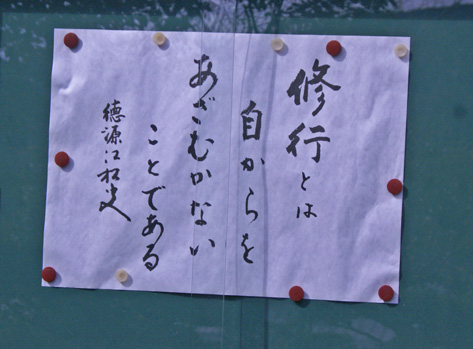 修行とは
自からを
あざむかない
ことである
徳源江松史